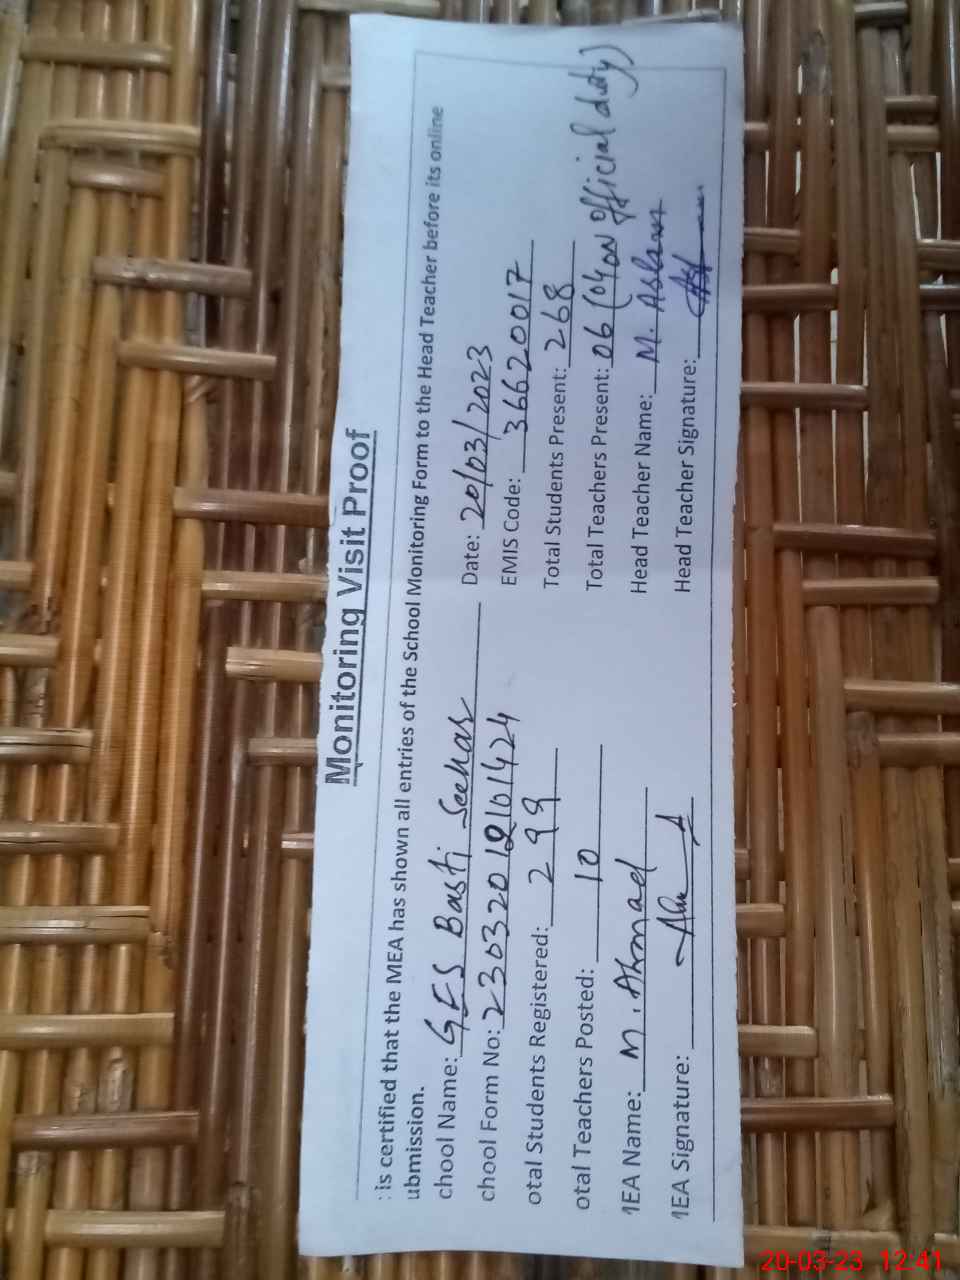 Monitoring Visit Proof
: is certified that the MEA has shown all entries of the School Monitoring Form to the Head Teacher before its online
ubmission.
chool Name: GES Basti Seehar Date: 20/03/2023
chool Form No: 23032012101424 EMIS Code: 36620017
otal Students Registered: 299 Total Students Present: 268
otal Teachers Posted: 10 Total Teachers Present: 06 (04 on official duty)
MEA Name: M. Ahmad Head Teacher Name: M. Aslam
MEA Signature: Head Teacher Signature:
20-03-23 12:41